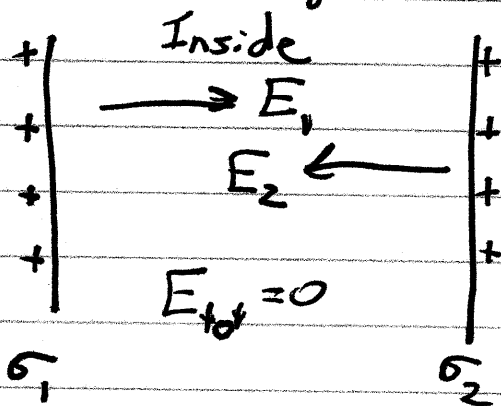 Inside
+ +
E₁
+ +
E₂
+ +
+ +
E_tot = 0
σ₁ σ₂